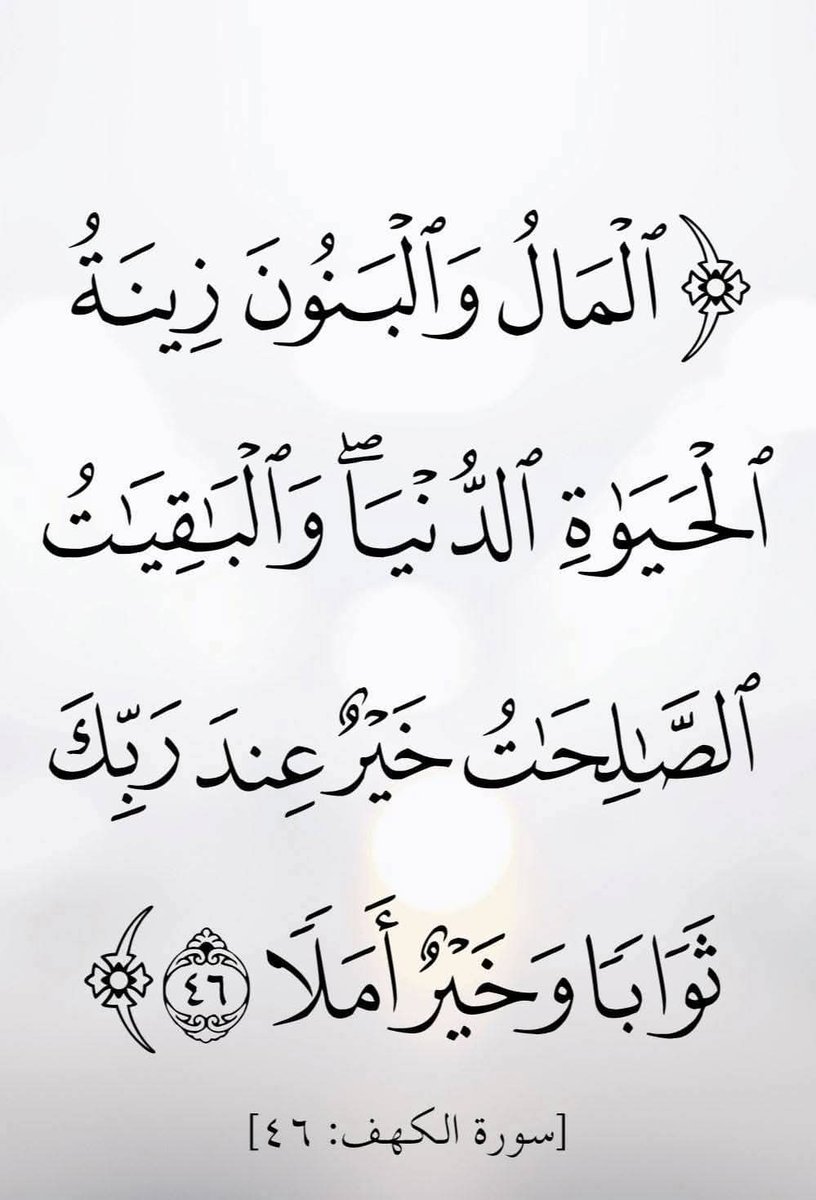 ﴿ ٱلْمَالُ وَٱلْبَنُونَ زِينَةُ
ٱلْحَيَوٰةِ ٱلدُّنْيَاۖ وَٱلْبَـٰقِيَـٰتُ
ٱلصَّـٰلِحَـٰتُ خَيْرٌ عِندَ رَبِّكَ
ثَوَابًا وَخَيْرٌ أَمَلًا ٤٦ ﴾
[سورة الكهف: ٤٦]